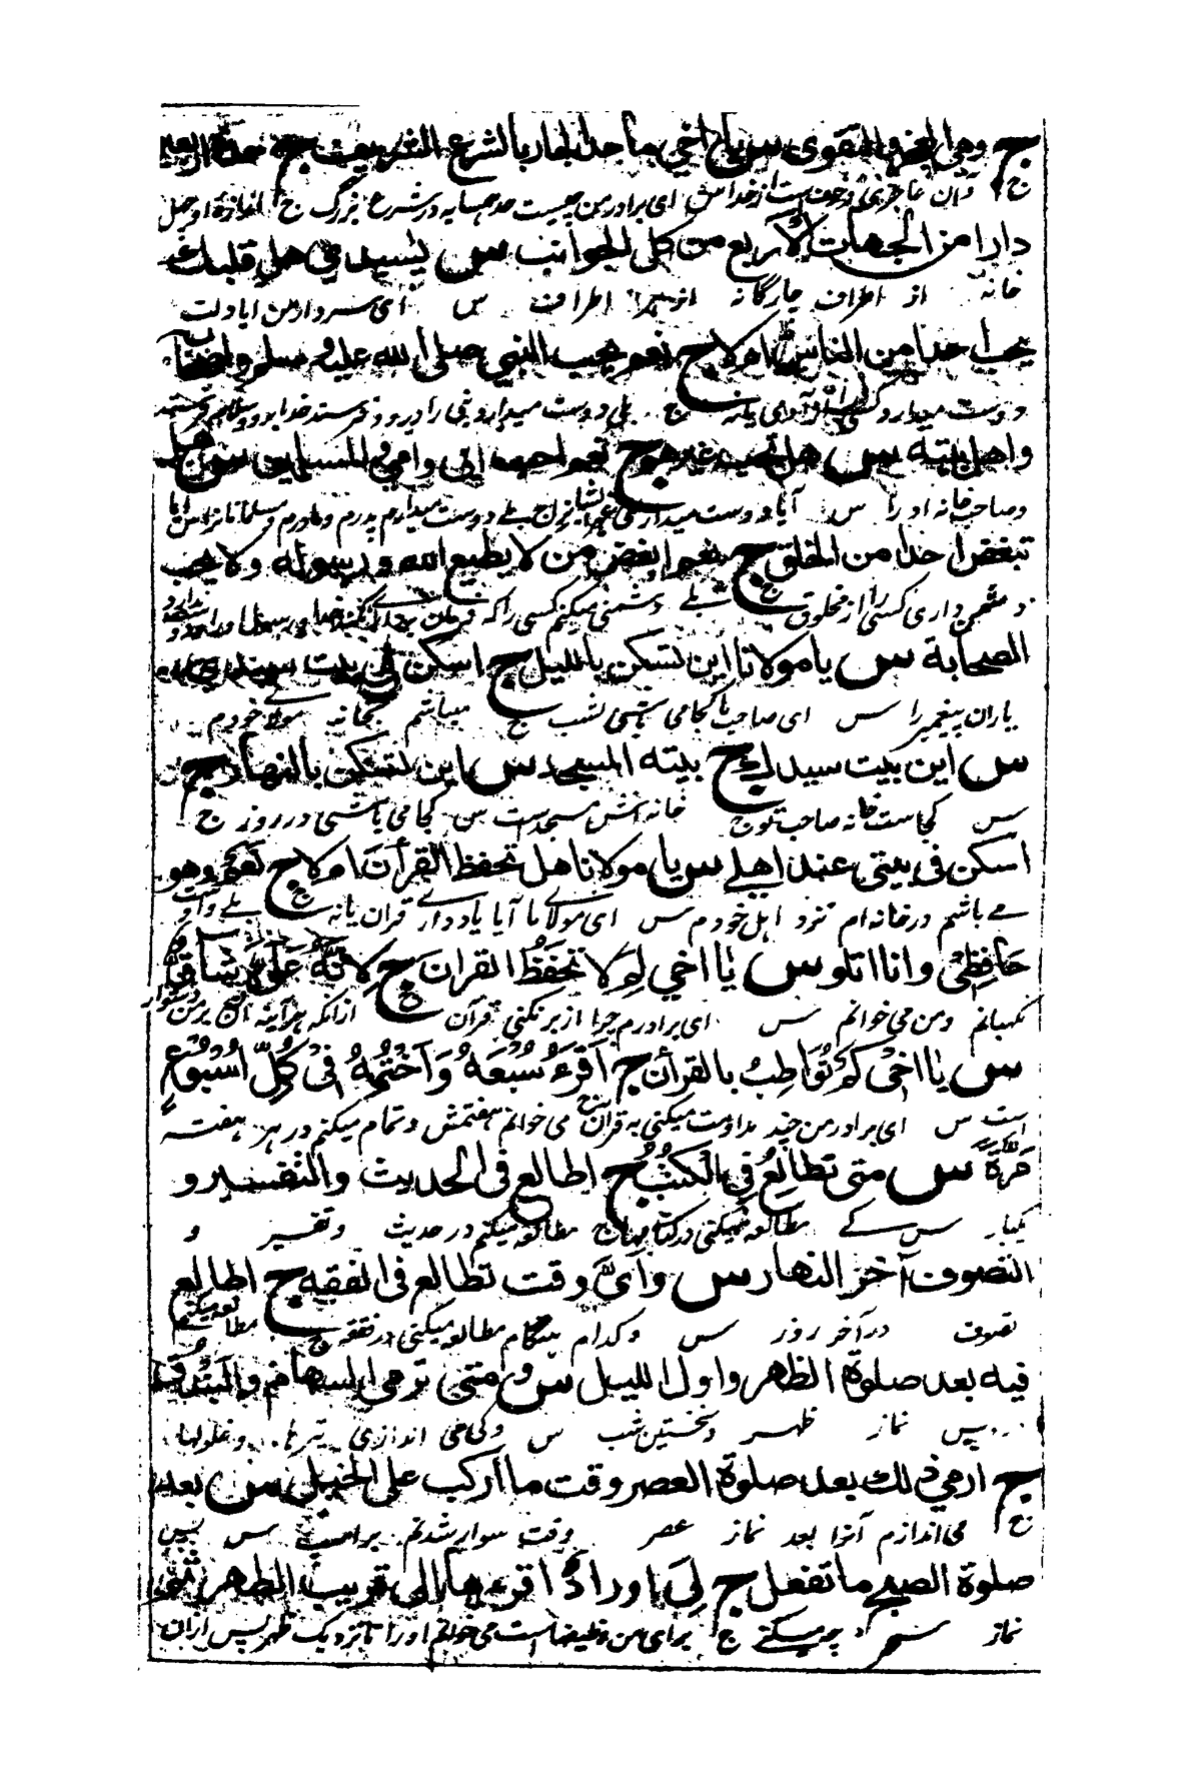 ج وهي العجز والتقوى س يا اخي ما حد الجار بالشرع الشريف ج حده اربعين
ج وآن عاجزی و خوفست از خدا س ای برادر من چیست حد همسایه در شرع بزرگ ج اندازه او چهل
دارا من الجهات الاربع من كل الجوانب س يا سيدي هل قلبك
خانه از اطراف چارگانه از همه اطراف س ای سردار من ایا دلت
يحب احدا من الناس ام لا ج نعم يحب النبي صلى الله عليه وسلم واصحابه
دوست میدارد کسی را از آدمی یا نه ج بلی دوست میدارد نبی را درود فرستد خدا برو و سلام فرستد
واهل بيته س هل تحب غيرهم ج نعم احب ابي وامي والمسلمين س هل
وصاحب خانه او را س آیا دوست میداری غیر ایشانرا ج بلے دوست میدارم پدرم و مادرم و مسلمانانرا س آیا
تبغض احدا من الخلق ج نعم ابغض من لا يطيع الله ورسوله ولا يحب
دشمن داری کسی را از مخلوق ج بلے دشمنی میکنم کسی را که فرمان خدا و رسول
الصحابة س يا مولانا اين تسكن بالليل ج اسكن في بيت سيدي
یاران پیغمبر را س ای صاحب ما کجا می باشی بشب ج میباشم بخانه مولاے خودم
س اين بيت سيدك ج بيته المسجد س اين تسكن بالنهار ج
س کجاست خانه صاحب تو ج خانه اش مسجد است س کجا می باشی در روز ج
اسكن في بيتي عند اهلي س يا مولانا هل تحفظ القرأن ام لا ج نعم وهو
مے باشم در خانه ام نزد اہل خودم س ای مولاے ما آیا یاد دارے قران یا نه ج بلے و او
حَافِظِيْ وانا اتلو س يا اخي لِمَ لا تحفَظُ القران ج لِاَنَّهُ عَلَيَّ شَاقٌّ
نگہبانم ومن می خوانم س ای برادرم چرا از بر نکنی قرآن ج از انکه هرآینه آن بر من دشوار
س يا اخي كَمْ تُوَاظِبُ بالقرأن ج اَقْرَءُ سُبُعَهُ وَاَخْتِمُهُ فِيْ كُلِّ اُسْبُوْعٍ
است س ای برادر من چند مداومت میکنی به قرآن ج می خوانم هفتمش و تمام میکنم در هر ہفتہ
مَرَّةً س متى تطالِعُ فِي الكتبُ ج اطالع في الحديث والتفسير و
یکبار س کے مطالعہ میکنی در کتابها ج مطالعہ میکنم در حدیث و تفسیر و
التصوف آخر النهار س واَيَّ وقت تطالع في الفقه ج اطالع
تصوف در آخر روز س و کدام ہنگام مطالعہ میکنی در فقه ج مطالعه میکنم
فيه بعد صلوة الظهر واول الليل س ومتى ترمي السهام والبندق
پس نماز ظہر و نخستین شب س و کی می اندازی تیرها و غلولها
ج ارمي ذلك بعد صلوة العصر وقت ما اركب على الخيل س بعد
ج می اندازم آنرا بعد نماز عصر وقت سوار شدنم بر اسپ س پس
صلوة الصبح ما تفعل ج لِيَ اورادٌ اقرءها الى قريب الظهر ثم
نماز سحر چه میکنے ج برای من وظیفها است می خوانم اورا تا نزدیک ظہر پس ازان